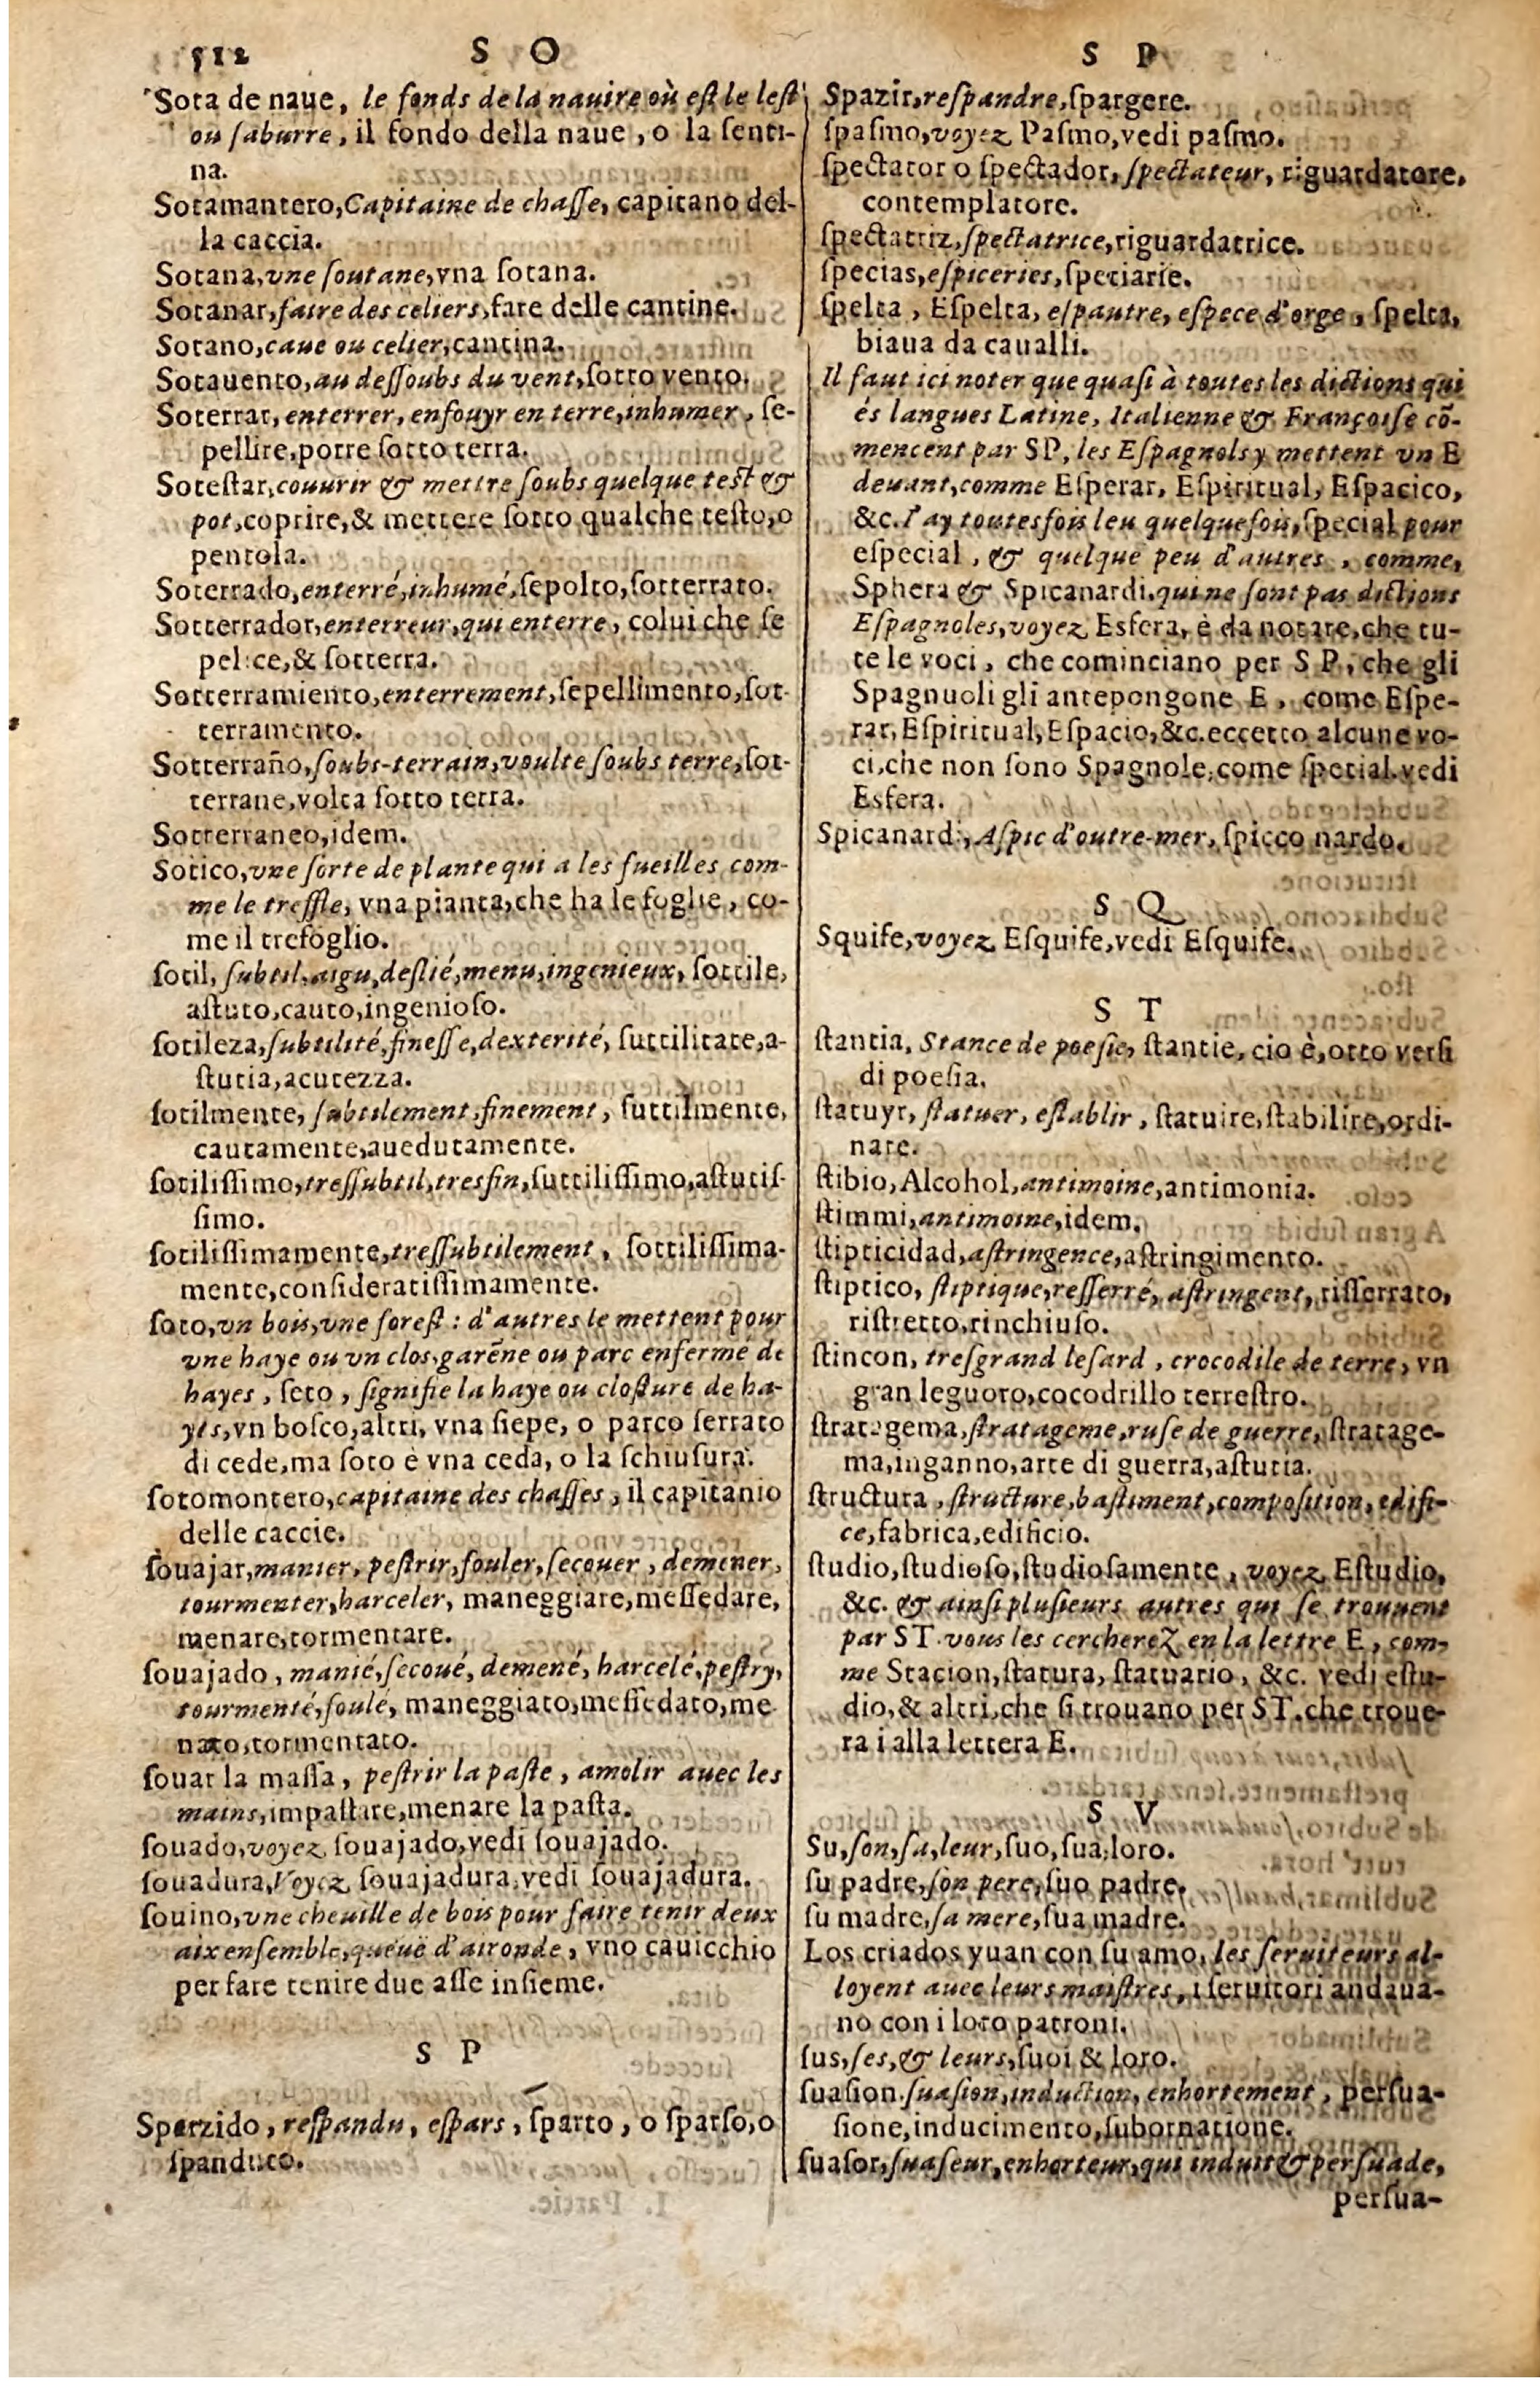 512 S O
Sota de naue, le fonds de la nauire où est le lest
ou saburre, il fondo della naue, o la senti-
na.
Sotamantero, Capitaine de chasse, capitano del-
la caccia.
Sotana, vne soutane, vna sotana.
Sotanar, faire des celiers, fare delle cantine.
Sotano, caue ou celier, cantina.
Sotauento, au dessoubs du vent, sotto vento.
Soterrar, enterrer, enfouyr en terre, inhumer, se-
pellire, porre sotto terra.
Sotestar, couurir & mettre soubs quelque test &
pot, coprire, & mettere sotto qualche testo, o
pentola.
Soterrado, enterré, inhumé, sepolto, sotterrato.
Sotterrador, enterreur, qui enterre, colui che se
pelisce, & sotterra.
Sotterramiento, enterrement, sepellimento, sot-
terramento.
Sotterraño, soubs-terrain, voulte soubs terre, sot-
terrane, volta sotto terra.
Sotterraneo, idem.
Sotico, vne sorte de plante qui a les fueilles com-
me le treffle, vna pianta, che ha le foglie, co-
me il trefoglio.
sotil, subtil, aigu, deslié, menu, ingenieux, sottile,
astuto, cauto, ingenioso.
sotileza, subtilité, finesse, dexterité, suttilitate, a-
stutia, acutezza.
sotilmente, subtilement, finement, suttilmente,
cautamente, auedutamente.
sotilissimo, tressubtil, tresfin, suttilissimo, astutis-
simo.
sotilissimamente, tressubtilement, sottilissima-
mente, consideratissimamente.
soto, vn bois, vne forest : d'autres le mettent pour
vne haye ou vn clos, garēne ou parc enfermé de
hayes, seto, signifie la haye ou closture de ha-
yes, vn bosco, altri, vna siepe, o parco serrato
di cede, ma soto è vna ceda, o la schiusura.
sotomontero, capitaine des chasses, il capitanio
delle caccie.
souajar, manier, pestrir, fouler, secouer, demener,
tourmenter, harceler, maneggiare, messedare,
menare, tormentare.
souajado, manié, secoué, demené, harcelé, pestry,
tourmenté, foulé, maneggiato, messedato, me-
nato, tormentato.
souar la massa, pestrir la paste, amolir auec les
mains, impastare, menare la pasta.
souado, voyez souajado, vedi souajado.
souadura, Voyez souajadura, vedi souajadura.
souino, vne cheuille de bois pour faire tenir deux
aix ensemble, queuë d'aironde, vno cauicchio
per fare tenire due asse insieme.
S P
Sparzido, respandu, espars, sparto, o sparso, o
spanduto.
S P
Spazir, respandre, spargere.
spasmo, voyez Pasmo, vedi pasmo.
spectator o spectador, spectateur, riguardatore,
contemplatore.
spectatriz, spectatrice, riguardatrice.
specias, espiceries, speciarie.
spelta, Espelta, espautre, espece d'orge, spelta,
biaua da caualli.
Il faut ici noter que quasi à toutes les dictions qui
és langues Latine, Italienne & Françoise cõ-
mencent par SP, les Espagnols y mettent vn E
deuant, comme Esperar, Espiritual, Espacico,
&c. I'ay toutesfois leu quelquefois, special pour
especial, & quelque peu d'autres, comme,
Sphera & Spicanardi, qui ne sont pas dictions
Espagnoles, voyez Esfera, è da notare, che tu-
te le voci, che cominciano per S P, che gli
Spagnuoli gli antepongone E, come Espe-
rar, Espiritual, Espacio, &c. eccetto alcune vo-
ci, che non sono Spagnole, come special. vedi
Esfera.
Spicanardi, Aspic d'outre-mer, spicco nardo.
S Q
Squife, voyez Esquife, vedi Esquife.
S T
stantia, Stance de poesie, stantie, cio è, otto versi
di poesia.
statuyr, statuer, establir, statuire, stabilire, ordi-
nare.
stibio, Alcohol, antimoine, antimonia.
stimmi, antimoine, idem.
stipticidad, astringence, astringimento.
stiptico, stiptique, resserré, astringent, risserrato,
ristretto, rinchiuso.
stincon, tresgrand lesard, crocodile de terre, vn
gran leguoro, cocodrillo terrestro.
stratagema, stratageme, ruse de guerre, stratage-
ma, inganno, arte di guerra, astutia.
structura, structure, bastiment, composition, edifi-
ce, fabrica, edificio.
studio, studioso, studiosamente, voyez Estudio,
&c. & ainsi plusieurs autres qui se trouuent
par ST. vous les chercherez en la lettre E, com-
me Stacion, statura, statuario, &c. vedi estu-
dio, & altri, che si trouano per ST. che troue-
rai alla lettera E.
S V
Su, son, sa, leur, suo, sua, loro.
su padre, son pere, suo padre.
su madre, sa mere, sua madre.
Los criados yuan con su amo, les seruiteurs al-
loyent auec leurs maistres, i seruitori andaua-
no con i loro patroni.
sus, ses, & leurs, suoi & loro.
suasion, suasion, induction, enhortement, persua-
sione, inducimento, subornatione.
suasor, suaseur, enhorteur, qui induit & persuade,
persua-